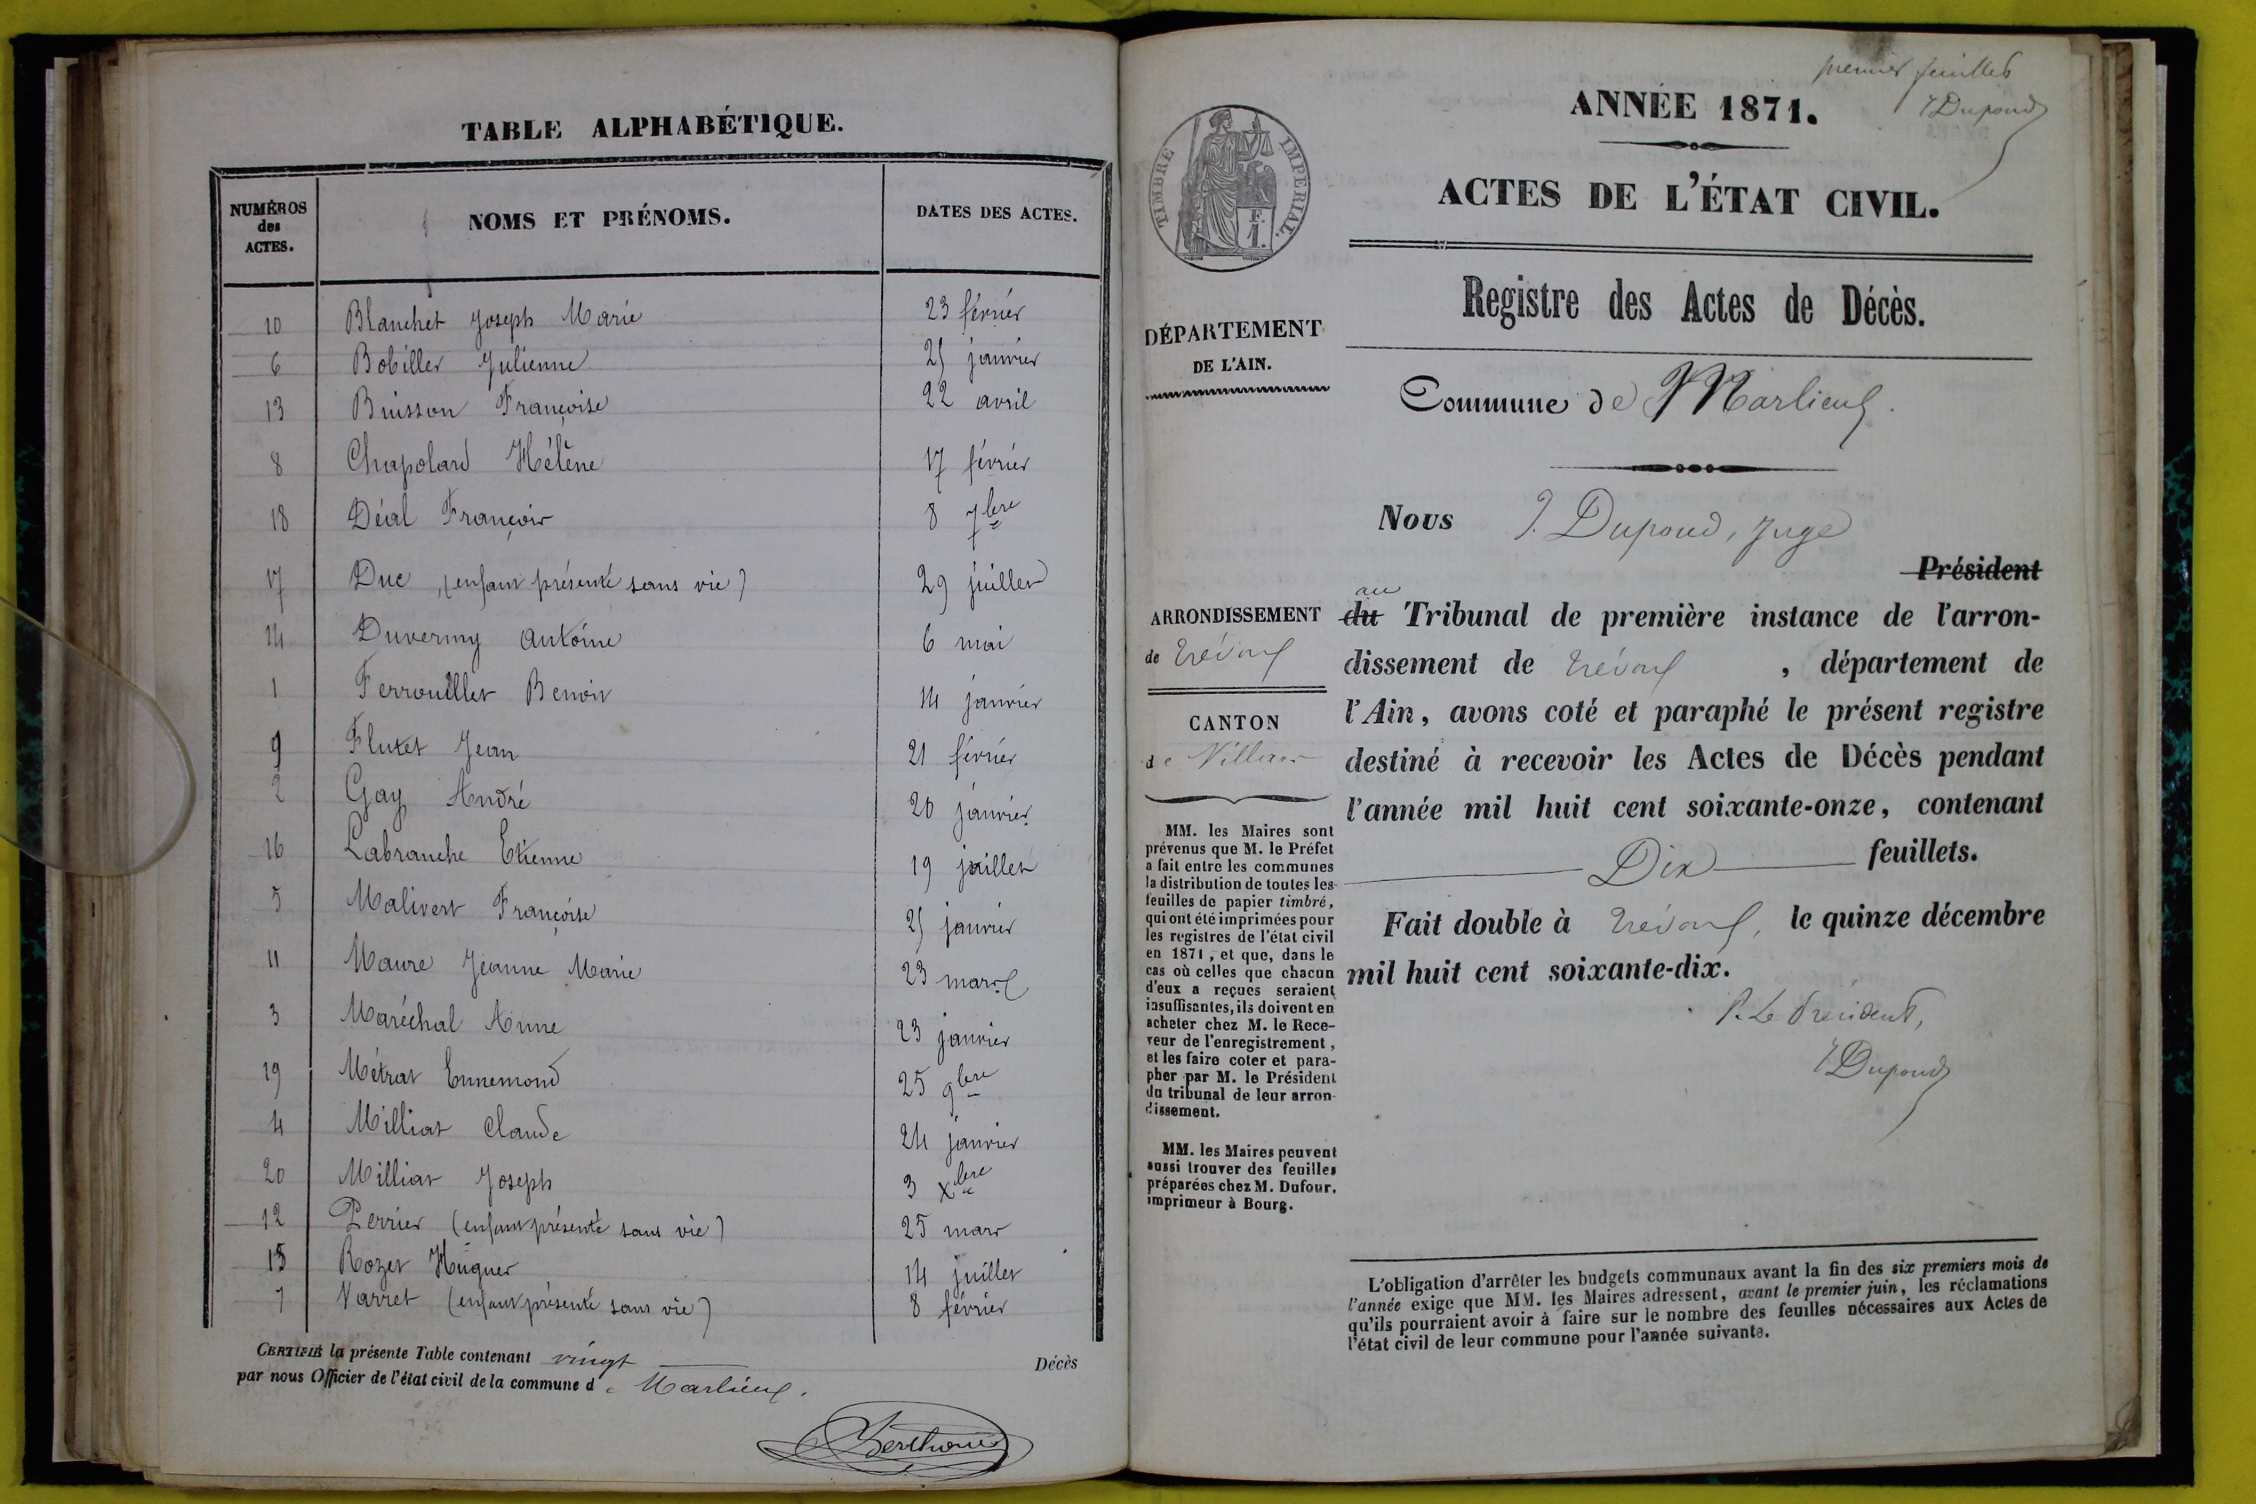 TABLE ALPHABÉTIQUE.
NUMÉROS des ACTES. NOMS ET PRÉNOMS. DATES DES ACTES.
10 Blanchet Joseph Marie 23 février
6 Bobiller Julienne 25 janvier
13 Buisson Françoise 22 avril
8 Chapoland Hélène 17 février
18 Déal François 8 7bre
17 Duc (enfant présenté sans vie) 29 juillet
14 Duverny Antoine 6 mai
1 Ferrouillet Benoit 14 janvier
9 Flutet Jean 21 février
2 Gay André 20 janvier
16 Labranche Etienne 19 juillet
5 Malivert Françoise 25 janvier
11 Maure Jeanne Marie 23 mars
3 Maréchal Anne 23 janvier
19 Métrat Ennemond 25 9bre
4 Milliat Claude 24 janvier
20 Milliat Joseph 3 Xbre
12 Perrier (enfant présenté sans vie) 25 mars
15 Rozet Hugues 14 juillet
7 Varret (enfant présenté sans vie) 8 février
CERTIFIÉ la présente Table contenant vingt Décès
par nous Officier de l'état civil de la commune de Marlieux.
premier feuillet
J Dupoud
TIMBRE IMPÉRIAL.
F.
1.
ANNÉE 1871.
ACTES DE L'ÉTAT CIVIL.
Registre des Actes de Décès.
Commune de Marlieux.
Nous J. Dupoud, Juge
Président
au
du Tribunal de première instance de l'arron-
dissement de Trévoux, département de
l'Ain, avons coté et paraphé le présent registre
destiné à recevoir les Actes de Décès pendant
l'année mil huit cent soixante-onze, contenant
Dix feuillets.
Fait double à Trévoux, le quinze décembre
mil huit cent soixante-dix.
P. Le Président,
J Dupoud
DÉPARTEMENT
DE L'AIN.
ARRONDISSEMENT
de Trévoux
CANTON
de Villars
MM. les Maires sont
prévenus que M. le Préfet
a fait entre les communes
la distribution de toutes les
feuilles de papier timbré,
qui ont été imprimées pour
les registres de l'état civil
en 1871, et que, dans le
cas où celles que chacun
d'eux a reçues seraient
insuffisantes, ils doivent en
acheter chez M. le Rece-
veur de l'enregistrement,
et les faire coter et para-
pher par M. le Président
du tribunal de leur arron-
dissement.
MM. les Maires peuvent
aussi trouver des feuilles
préparées chez M. Dufour,
imprimeur à Bourg.
L'obligation d'arrêter les budgets communaux avant la fin des six premiers mois de
l'année exige que MM. les Maires adressent, avant le premier juin, les réclamations
qu'ils pourraient avoir à faire sur le nombre des feuilles nécessaires aux Actes de
l'état civil de leur commune pour l'année suivante.